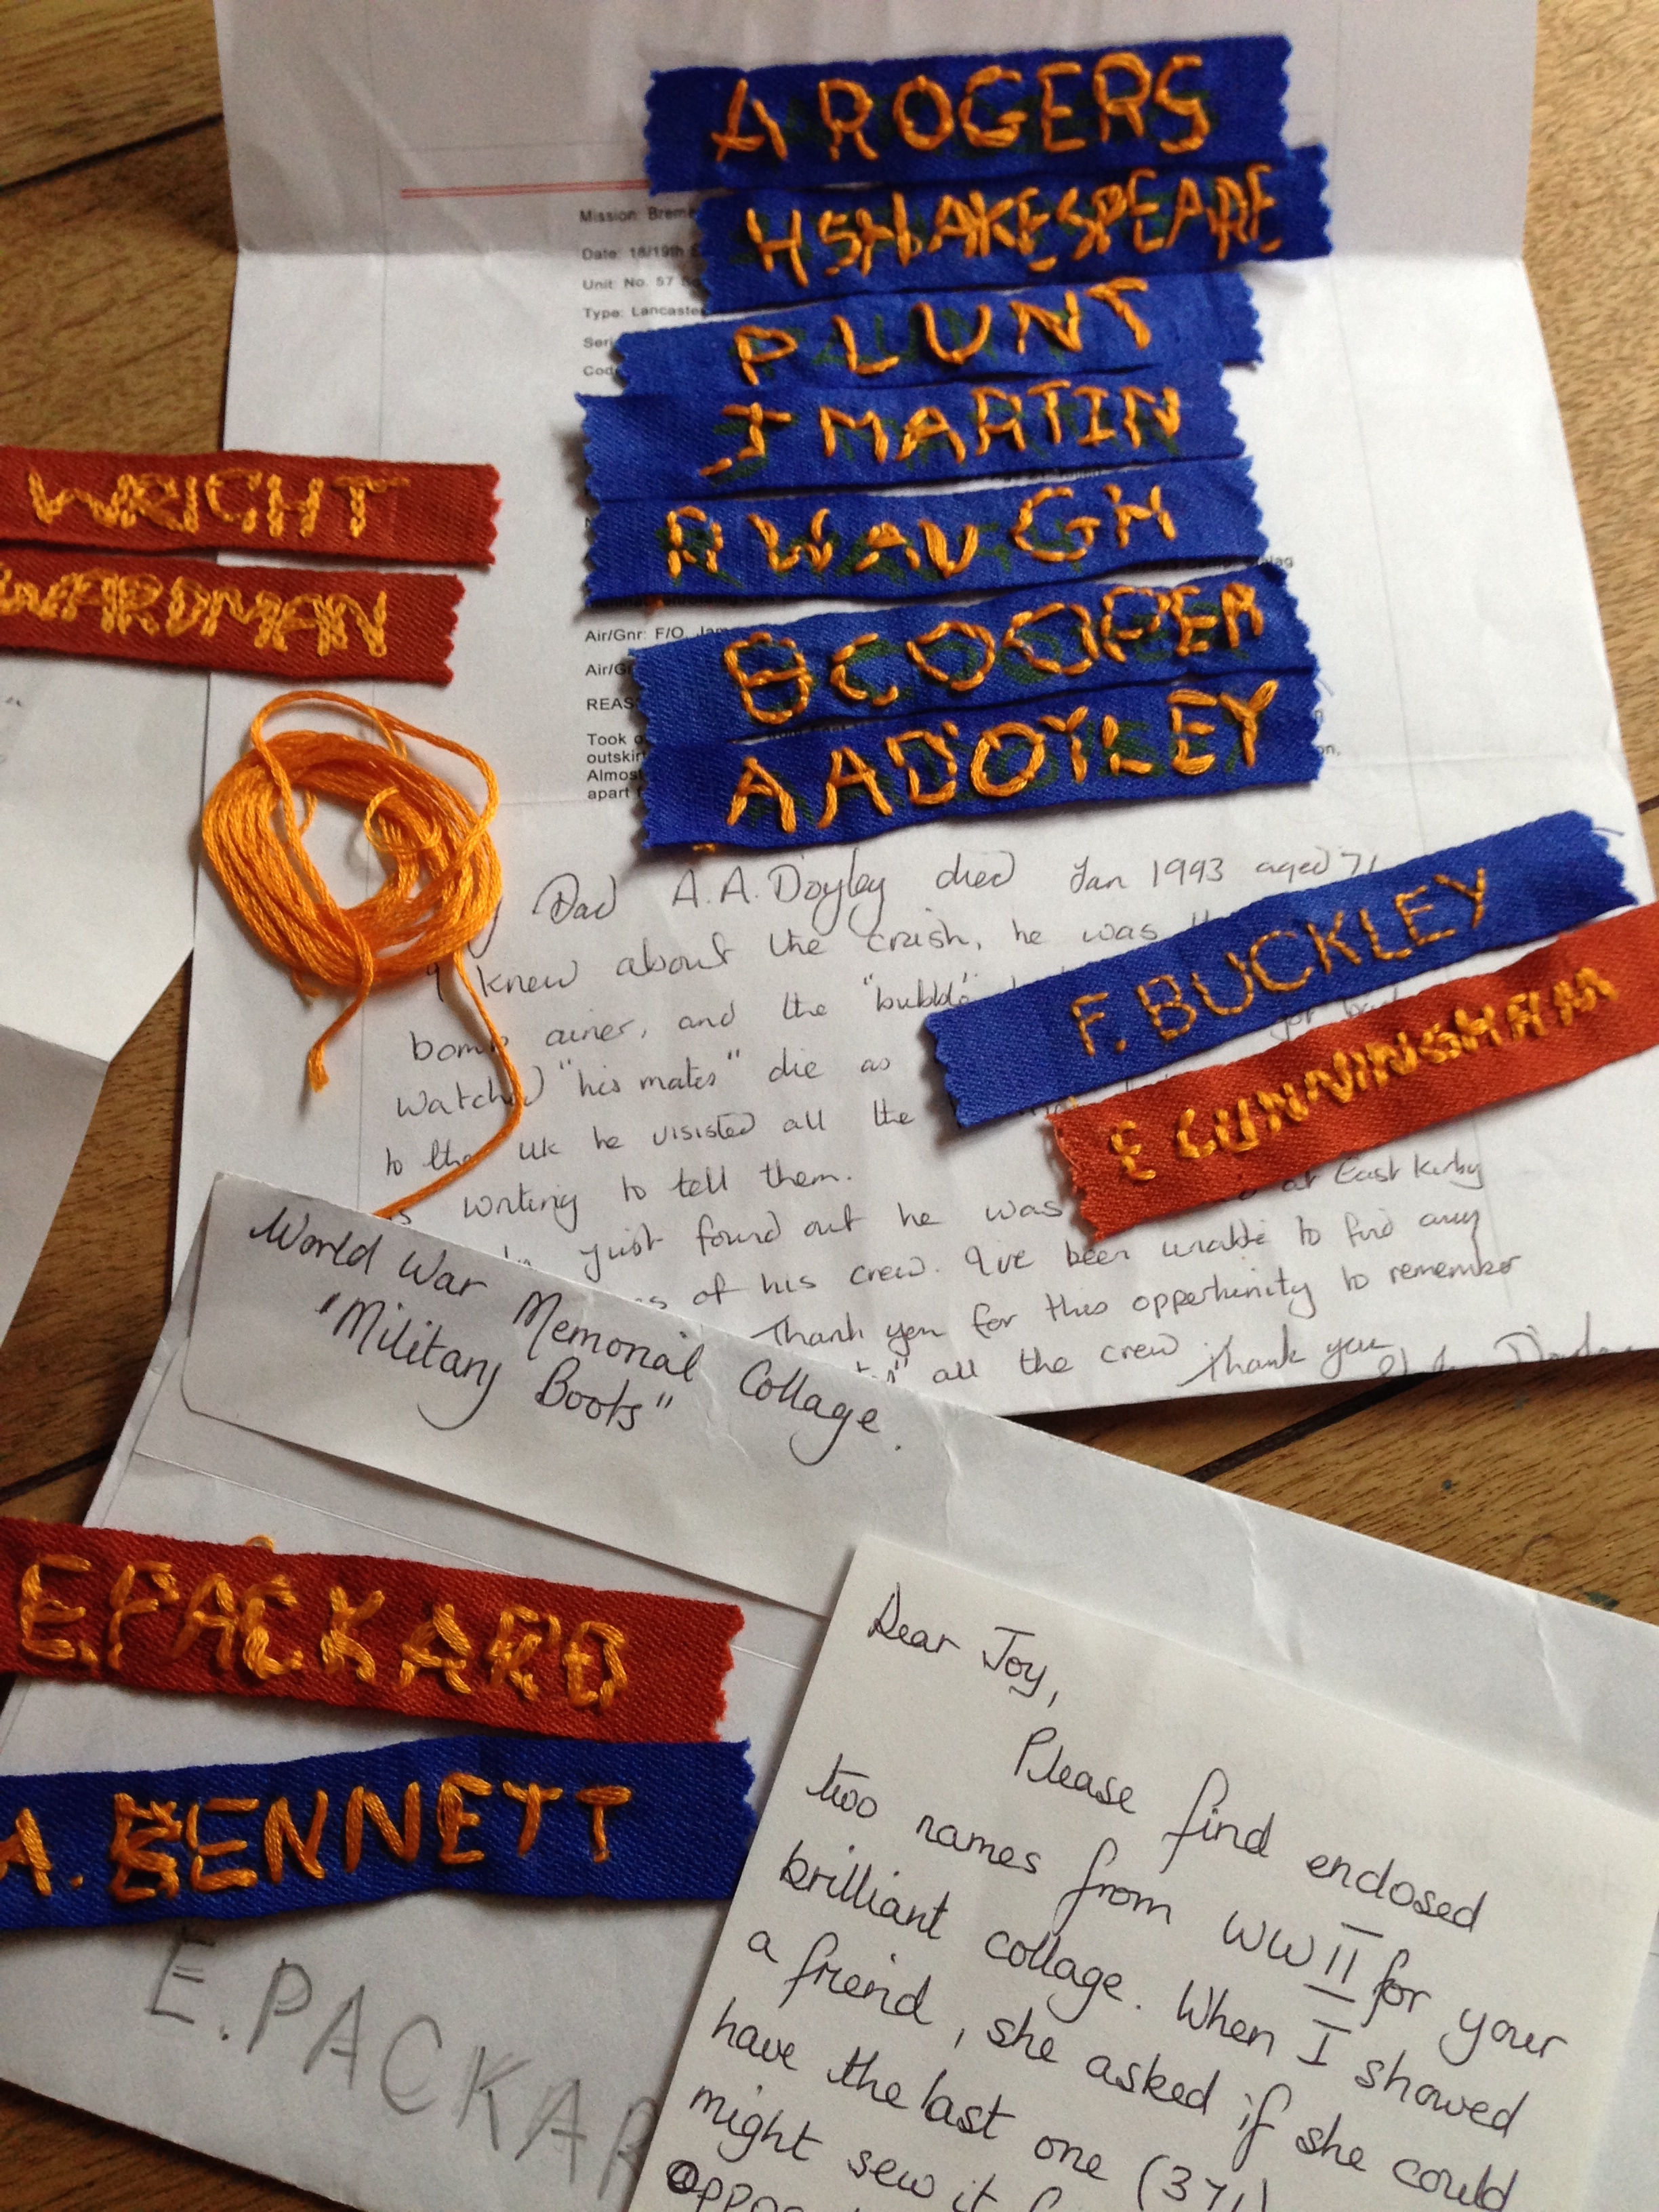 A ROGERS
H SHAKESPEARE
P LUNT
J MARTIN
R WAUGH
B COOPER
A A D'OYLEY
WRIGHT
WARDMAN
Mission: Breme
Date: 18/19th
Unit: No. 57
Type: Lancaster
Seri
Cod
Air/Gnr: F/O
Air/G
REAS
Took o
outskir
Almost
apart f
Dad A.A. Doyley died Jan 1993 aged 71
I knew about the crash, he was
bomb aimer, and the "bubble"
Watched "his mates" die as
to the UK he visisted all the
writing to tell them.
just found out he was at East Kirby
of his crew. I've been unable to find any
Thank you for this opportunity to remember
all the crew. Thank you
F. BUCKLEY
E CUNNINGHAM
World War Memorial Collage.
"Military Boots"
E.PACKARD
A. BENNETT
E.PACKAR
Dear Joy,
Please find enclosed
two names from WWII for your
brilliant collage. When I showed
a friend, she asked if she could
have the last one (371)
might sew it